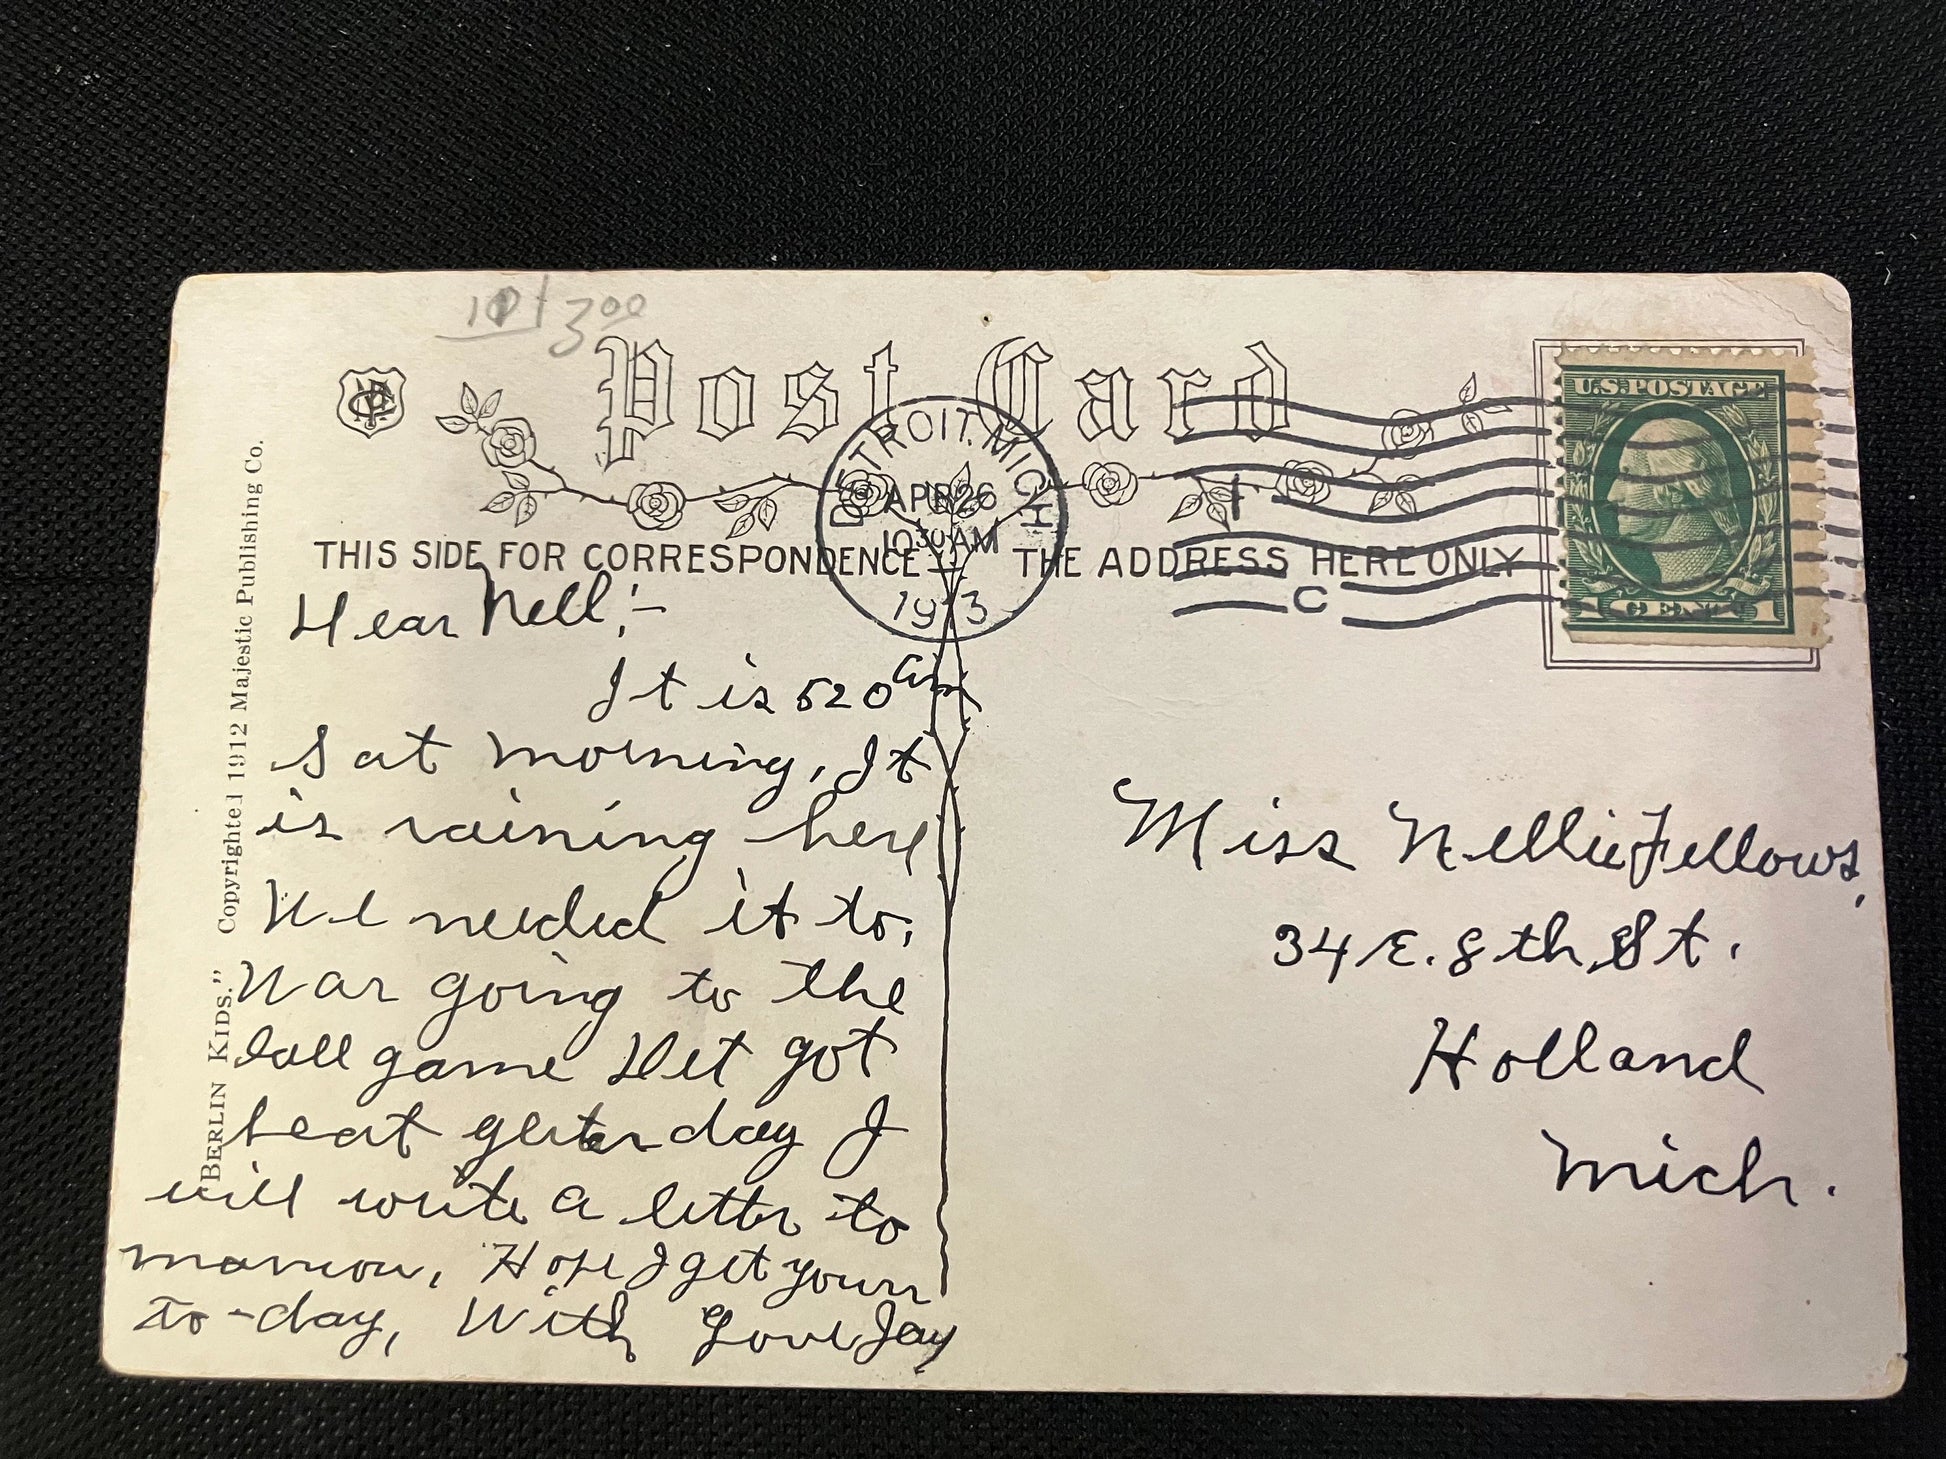 101 3.00
Post Card
U.S. POSTAGE
1 CENTS 1
DETROIT, MICH
APR 26
10 30 AM
1913
THIS SIDE FOR CORRESPONDENCE
THE ADDRESS HERE ONLY
"BERLIN KIDS." Copyrighted 1912 Majestic Publishing Co.
Dear Nell:-
It is 520 am
Sat morning, It
is raining here
We needed it to,
Was going to the
ball game Det got
beat yesterday I
will write a letter to
morrow, Hope I get yours
to-day, With Love Jay
Miss Nellie Fellows,
34 E. 8th, St.
Holland
Mich.